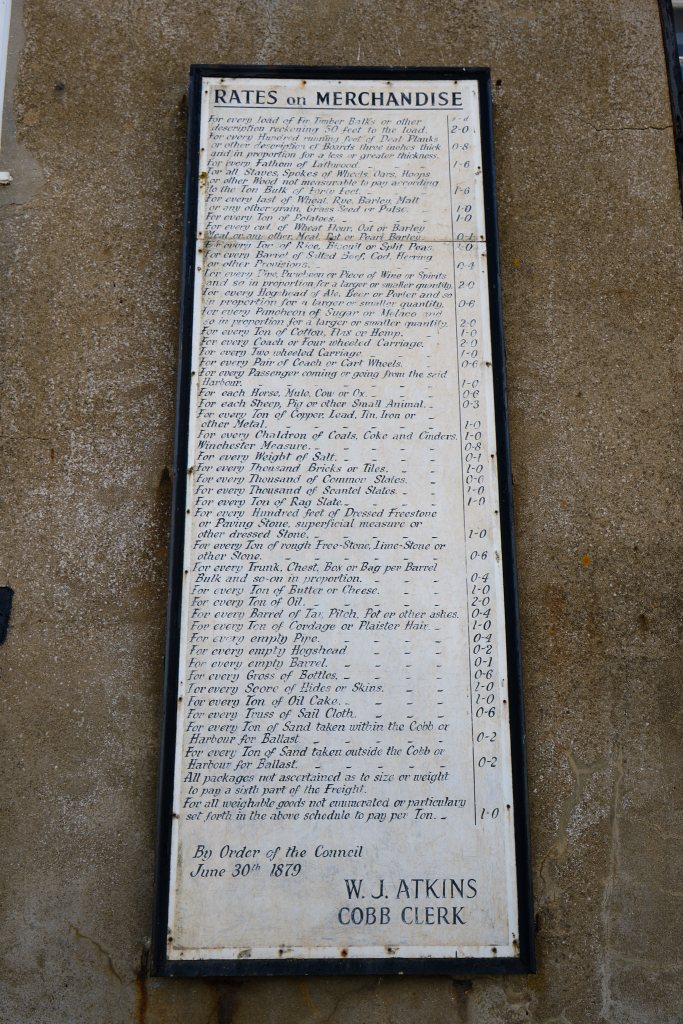 RATES on MERCHANDISE
For every load of Fir Timber Balks or other
description reckoning 50 feet to the load. 2-0
For every Hundred running feet of Deal Planks
or other description of Boards three inches thick 0-8
and in proportion for a less or greater thickness.
For every Fathom of Lathwood. 1-6
For all Staves, Spokes of Wheels, Oars, Hoops
or other Wood not measurable to pay according
to the Ton Bulk of Forty Feet. 1-6
For every last of Wheat, Rye, Barley, Malt
or any other grain, Grass Seed or Pulse. 1-0
For every Ton of Potatoes. 1-0
For every cwt. of Wheat Flour, Oat or Barley
Meal or any other Meal, Pot or Pearl Barley. 0-1
For every Ton of Rice, Biscuit or Split Peas.
For every Barrel of Salted Beef, Cod, Herring
or other Provisions. 0-4
For every Pipe, Puncheon or Piece of Wine or Spirits
and so in proportion for a larger or smaller quantity. 2-0
For every Hogshead of Ale, Beer or Porter and so
in proportion for a larger or smaller quantity. 0-6
For every Puncheon of Sugar or Melaco and
so in proportion for a larger or smaller quantity. 2-0
For every Ton of Cotton, Flax or Hemp. 1-0
For every Coach or Four wheeled Carriage. 2-0
For every Two wheeled Carriage. 1-0
For every Pair of Coach or Cart Wheels. 0-6
For every Passenger coming or going from the said
Harbour. 1-0
For each Horse, Mule, Cow or Ox. 0-6
For each Sheep, Pig or other Small Animal. 0-3
For every Ton of Copper, Lead, Tin, Iron or
other Metal. 1-0
For every Chaldron of Coals, Coke and Cinders. 1-0
Winchester Measure. 0-8
For every Weight of Salt. 0-1
For every Thousand Bricks or Tiles. 1-0
For every Thousand of Common Slates. 0-6
For every Thousand of Scantel Slates. 1-0
For every Ton of Rag Slate. 1-0
For every Hundred feet of Dressed Freestone
or Paving Stone, superficial measure or
other dressed Stone. 1-0
For every Ton of rough Free-Stone, Lime-Stone or
other Stone. 0-6
For every Trunk, Chest, Box or Bag per Barrel
Bulk and so-on in proportion. 0-4
For every Ton of Butter or Cheese. 1-0
For every Ton of Oil. 2-0
For every Barrel of Tar, Pitch, Pot or other ashes. 0-4
For every Ton of Cordage or Plaister Hair. 1-0
For every empty Pipe. 0-4
For every empty Hogshead 0-2
For every empty Barrel. 0-1
For every Gross of Bottles. 0-6
For every Score of Hides or Skins. 1-0
For every Ton of Oil Cake. 1-0
For every Truss of Sail Cloth. 0-6
For every Ton of Sand taken within the Cobb or
Harbour for Ballast 0-2
For every Ton of Sand taken outside the Cobb or
Harbour for Ballast. 0-2
All packages not ascertained as to size or weight
to pay a sixth part of the Freight.
For all weighable goods not enumerated or particulary
set forth in the above schedule to pay per Ton. 1-0
By Order of the Council
June 30th 1879
W. J. ATKINS
COBB CLERK